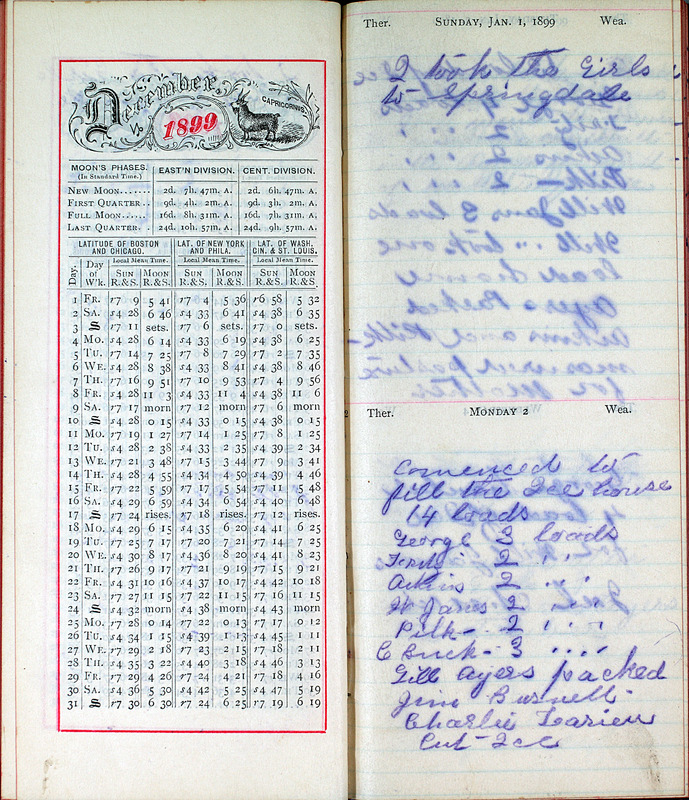 December,
1899
CAPRICORNUS.
MOON'S PHASES. EAST'N DIVISION. CENT. DIVISION.
(In Standard Time.)
NEW MOON....... 2d. 7h. 47m. A. 2d. 6h. 47m. A.
FIRST QUARTER.. 9d. 4h. 2m. A. 9d. 3h. 2m. A.
FULL MOON...... 16d. 8h. 31m. A. 16d. 7h. 31m. A.
LAST QUARTER... 24d. 10h. 57m. A. 24d. 9h. 57m. A.
LATITUDE OF BOSTON AND CHICAGO. LAT. OF NEW YORK AND PHILA. LAT. OF WASH. CIN. & ST. LOUIS.
Local Mean Time. Local Mean Time. Local Mean Time.
Day. Day of W'k. SUN R.&S. MOON R.&S. SUN R.&S. MOON R.&S. SUN R.&S. MOON R.&S.
1 FR. r7 9 5 41 r7 4 5 36 r6 58 5 32
2 SA. s4 28 6 46 s4 33 6 41 s4 38 6 35
3 S r7 11 sets. r7 6 sets. r7 0 sets.
4 MO. s4 28 6 14 s4 33 6 19 s4 38 6 25
5 TU. r7 14 7 25 r7 8 7 29 r7 2 7 35
6 WE. s4 28 8 38 s4 33 8 41 s4 38 8 46
7 TH. r7 16 9 51 r7 10 9 53 r7 4 9 56
8 FR. s4 28 11 3 s4 33 11 4 s4 38 11 6
9 SA. r7 17 morn r7 12 morn r7 6 morn
10 S s4 28 0 15 s4 33 0 15 s4 38 0 15
11 MO. r7 19 1 27 r7 14 1 25 r7 8 1 25
12 TU. s4 28 2 38 s4 33 2 35 s4 39 2 34
13 WE. r7 21 3 48 r7 15 3 44 r7 9 3 41
14 TH. s4 28 4 55 s4 34 4 50 s4 39 4 46
15 FR. r7 22 5 59 r7 17 5 54 r7 11 5 48
16 SA. s4 29 6 59 s4 34 6 54 s4 40 6 48
17 S r7 24 rises. r7 18 rises. r7 12 rises.
18 MO. s4 29 6 15 s4 35 6 20 s4 41 6 25
19 TU. r7 25 7 17 r7 20 7 21 r7 14 7 25
20 WE. s4 30 8 17 s4 36 8 20 s4 41 8 23
21 TH. r7 26 9 17 r7 21 9 19 r7 15 9 21
22 FR. s4 31 10 16 s4 37 10 17 s4 42 10 18
23 SA. r7 27 11 15 r7 22 11 15 r7 16 11 15
24 S s4 32 morn s4 38 morn s4 43 morn
25 MO. r7 28 0 14 r7 22 0 13 r7 17 0 12
26 TU. s4 34 1 15 s4 39 1 13 s4 45 1 11
27 WE. r7 29 2 18 r7 23 2 15 r7 18 2 11
28 TH. s4 35 3 22 s4 40 3 18 s4 46 3 13
29 FR. r7 29 4 26 r7 24 4 21 r7 18 4 16
30 SA. s4 36 5 30 s4 42 5 25 s4 47 5 19
31 S r7 30 6 30 r7 24 6 25 r7 19 6 19
Ther. SUNDAY, JAN. 1, 1899 Wea.
I took the Girls
to Springdale
Ther. MONDAY 2 Wea.
Comenced to
fill the Ice house
14 loads
George 3 loads
2 " "
Atkins 2 " "
W Janes 2 " "
Pilk- 2 " "
C Buck- 3 " "
Gill Ayers packed
Jim Burnell
Charlie Larieu
Cut Ice